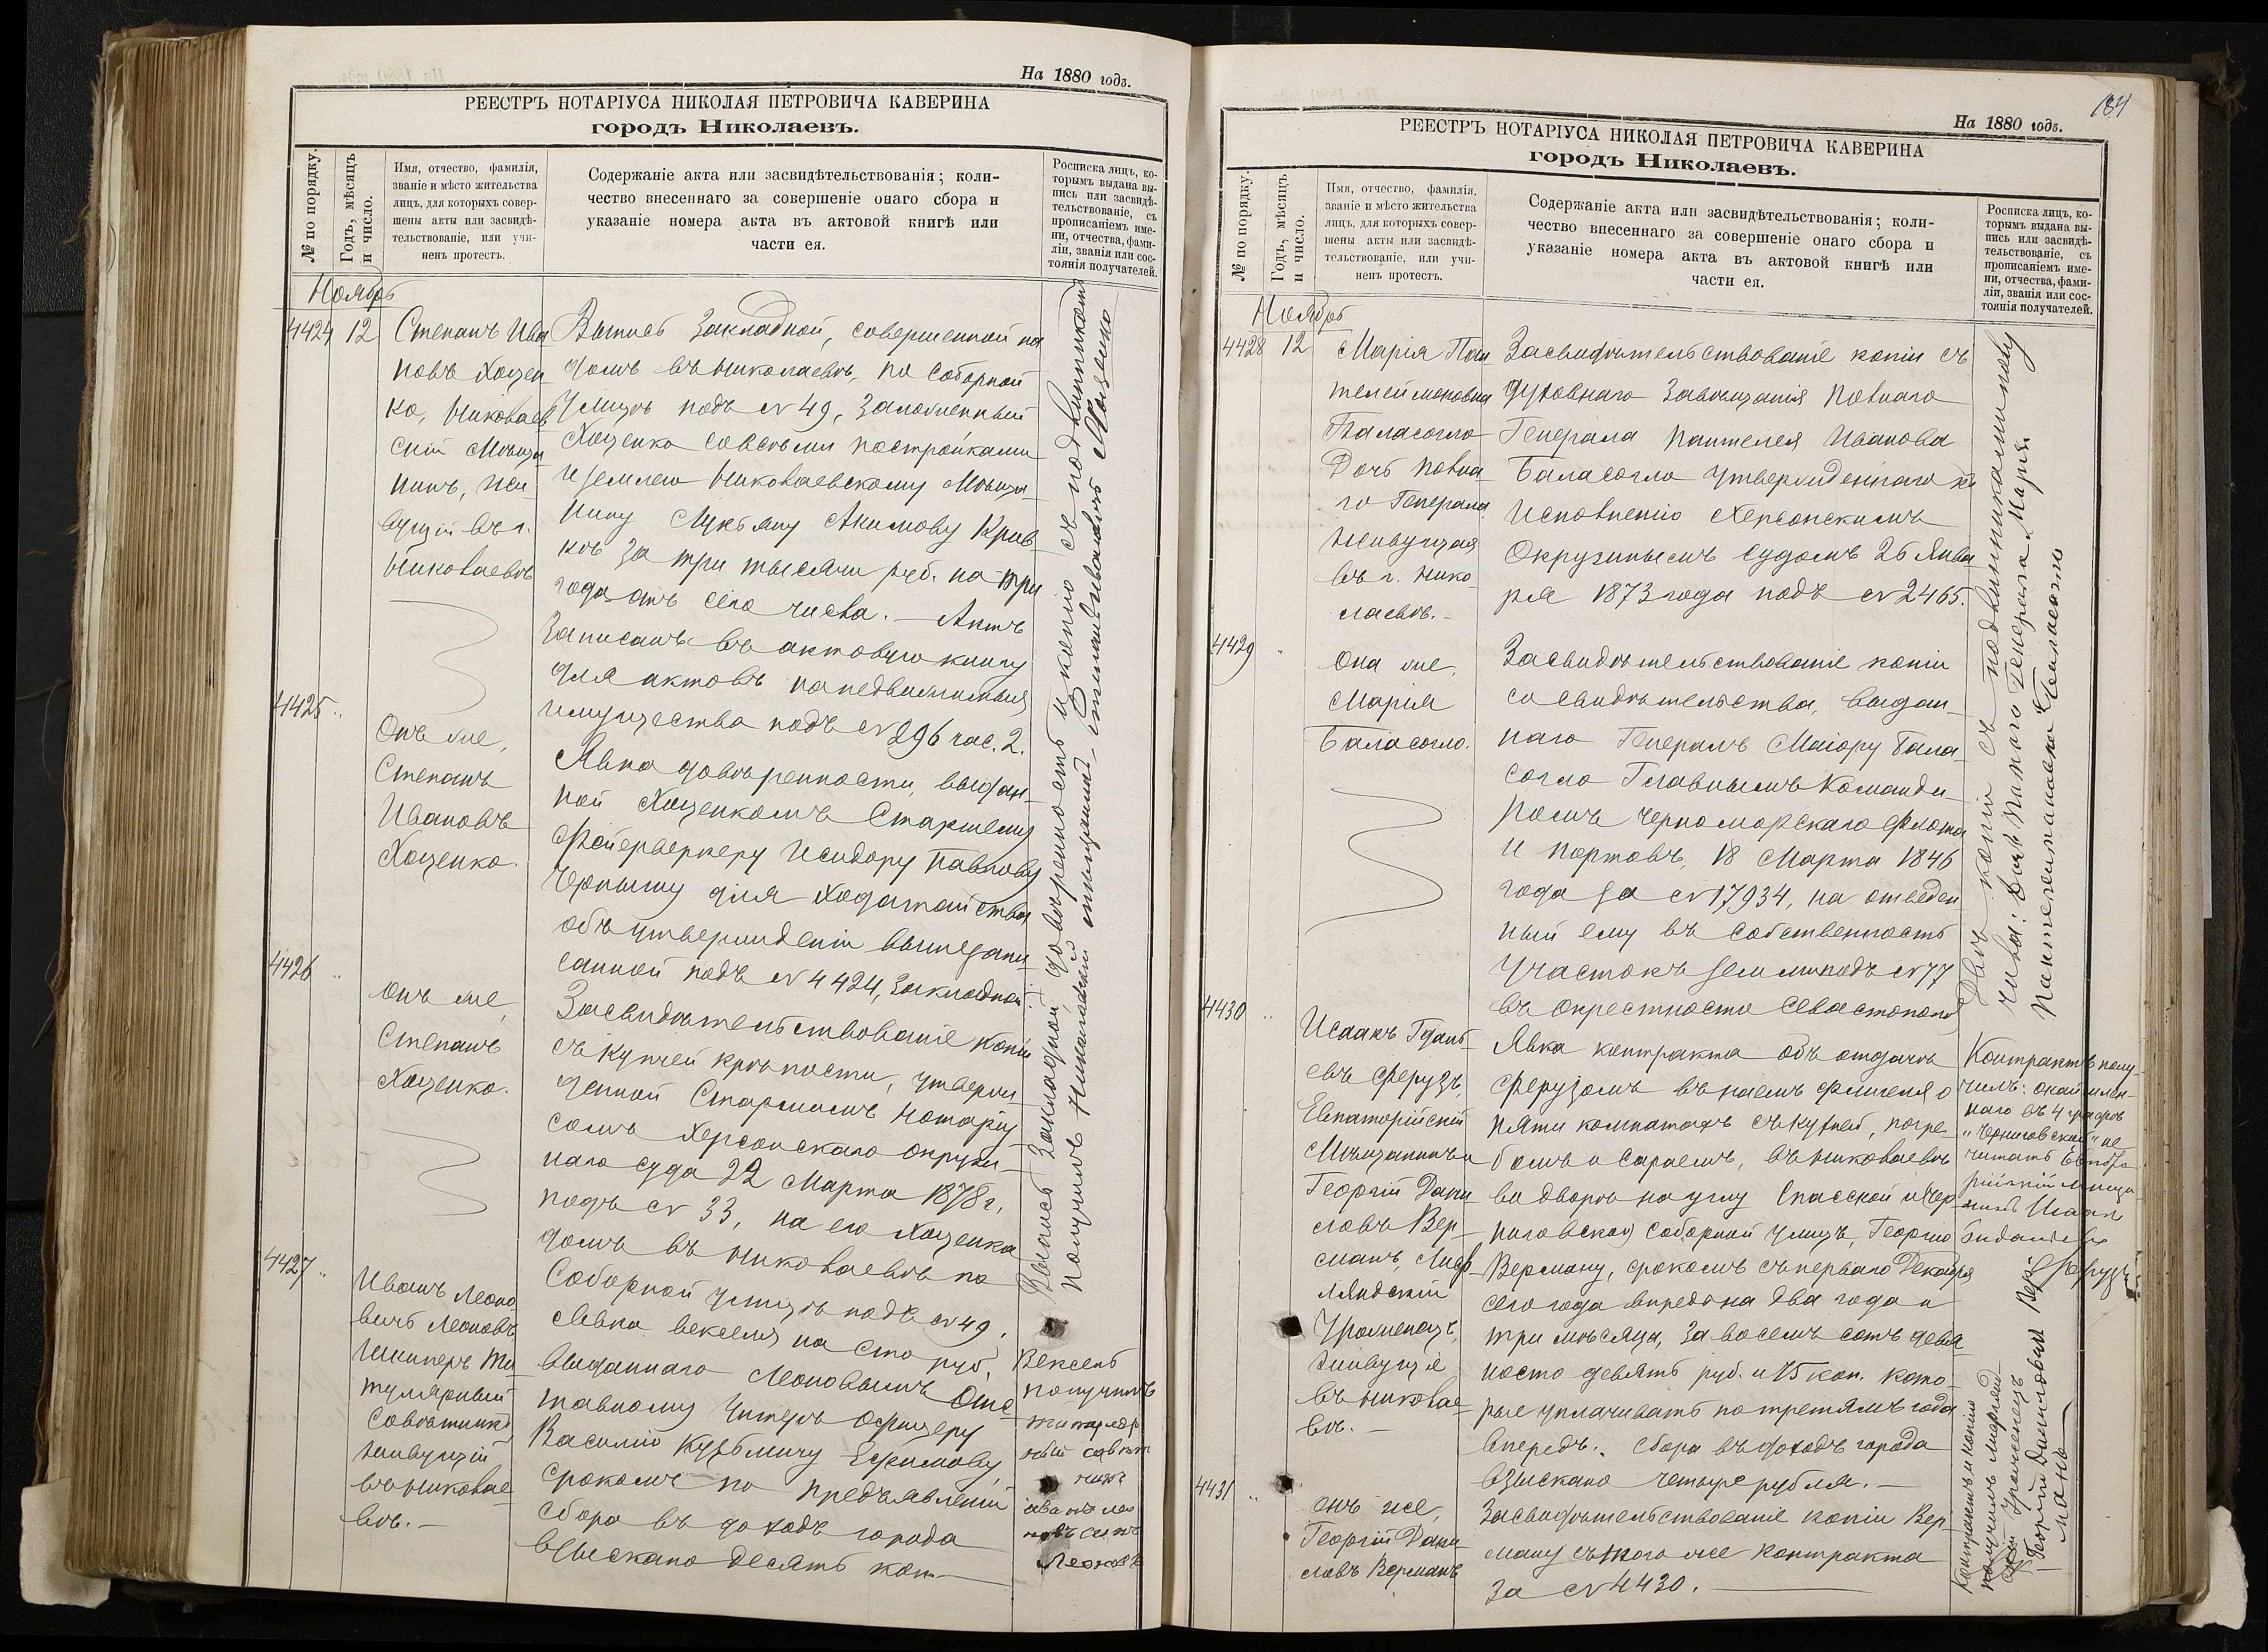 На 1880 годъ.
РЕЕСТРЪ НОТАРІУСА НИКОЛАЯ ПЕТРОВИЧА КАВЕРИНА
городъ Николаевъ.
№ по порядку.
Годъ, мѣсяцъ
и число.
Имя, отчество, фамилія,
званіе и мѣсто жительства
лицъ, для которыхъ совер-
шены акты или засвидѣ-
тельствованіе, или учи-
ненъ протестъ.
Содержаніе акта или засвидѣтельствованія; коли-
чество внесеннаго за совершеніе онаго сбора и
указаніе номера акта въ актовой книгѣ или
части ея.
Росписка лицъ, ко-
торымъ выдана вы-
пись или засвидѣ-
тельствованіе, съ
прописаніемъ име-
ни, отчества, фами-
ліи, званія или сос-
тоянія получателей.
Ноябрь
4424 12
Степанъ Ива
новъ Хоценко
ко, Николаев
скій Мѣща
нинъ, жи
вущій въ г.
Николаевѣ
Выпись Закладной, совершенной на
домъ въ Николаевѣ, по Соборной
Улицѣ подъ № 49, заложенный
Хоценко со всѣми постройками
и землею Николаевскому Мѣща-
нину Лукьяну Акимову Крив
кѣ за три тысячи руб. на три
года отъ сего числа. — Актъ
записанъ въ актовую книгу
для актовъ на недвижимыя
имущества подъ № 296 час. 2.
4425 "
Онъ же,
Степанъ
Ивановъ
Хоценко.
Явка довѣренности, выдан-
ной Хоценкомъ Старшему
Фейерверкеру Исидору Павлову
Чернышу для ходатайства
объ утвержденіи вышепи
санной подъ № 4424, Закладной.
4426 "
Онъ же,
Степанъ
Хоценко.
Засвидѣтельствованіе копіи
съ купчей крѣпости, утверж
денной Старшимъ Нотаріу
сомъ Херсонскаго Окруж-
наго суда 22 Марта 1878 г.,
подъ № 33, на его Хоценка
домъ въ Николаевѣ по
Соборной улицѣ подъ № 49.
Выпись Закладной, довѣренность и копію съ подлинникомъ
получилъ Николаевскій мѣщанинъ Степанъ Ивановъ Хоценко
4427 "
Иванъ Леоно
вичъ Леоновъ
Шкиперъ Ти
тулярный
Совѣтникъ,
живущій
въ Николае-
вѣ. —
Явка векселя на сто руб.,
выданнаго Леоновымъ Отс
тавному Унтеръ Офицеру
Василію Кузьмичу Ефимову,
срокомъ по предъявленіи
Сбора въ доходъ города
взыскано десять коп. —
Вексель
получилъ
титуляр
ный совѣт
никъ
иванъ лео
новъ сынъ
Леоновъ
184
На 1880 годъ.
РЕЕСТРЪ НОТАРІУСА НИКОЛАЯ ПЕТРОВИЧА КАВЕРИНА
городъ Николаевъ.
№ по порядку.
Годъ, мѣсяцъ
и число.
Имя, отчество, фамилія,
званіе и мѣсто жительства
лицъ, для которыхъ совер-
шены акты или засвидѣ-
тельствованіе, или учи-
ненъ протестъ.
Содержаніе акта или засвидѣтельствованія; коли-
чество внесеннаго за совершеніе онаго сбора и
указаніе номера акта въ актовой книгѣ или
части ея.
Росписка лицъ, ко-
торымъ выдана вы-
пись или засвидѣ-
тельствованіе, съ
прописаніемъ име-
ни, отчества, фами-
ліи, званія или сос-
тоянія получателей.
Ноябрь
4428 12
Марія Пан
телеймоновна
Баласогло
Дочь Полна
го Генерала
живущая
въ г. Нико-
лаевѣ. —
Засвидѣтельствованіе копіи съ
духовнаго завѣщанія Полнаго
Генерала Пантелея Иванова
Баласогло утвержденнаго къ
исполненію Херсонскимъ
Окружнымъ Судомъ 26 Янва
ря 1873 года подъ № 2465.
4429 "
Она же,
Марія
Баласогло.
Засвидѣтельствованіе копіи
со свидѣтельства, выдан-
наго Генералъ Маіору Бала-
согло Главнымъ Команди-
ромъ Черноморскаго Флота
и портовъ, 18 Марта 1846
года за № 17934, на отведен
ный ему въ собственность
участокъ земли подъ № 77
въ окрестности Севастополя
Двѣ копіи съ подлинниками полу
чила: дочь Полнаго Генерала Марія
Пантелеймоновна Баласогло
4430 "
Исаакъ Гдаль-
евъ Ферузъ,
Евпаторійскій
Мѣщанинъ и
Георгій Дани
ловъ Вер-
манъ, Лиф-
ляндскій
Уроженецъ,
живущіе
въ Николае-
вѣ. —
Явка контракта объ отдачѣ
Ферузомъ въ наемъ флигеля о
пяти комнатахъ съ кухней, погре-
бомъ и сараемъ, въ Николаевѣ
во дворѣ на углу Спасской и Чер
ниговской Соборной улицъ, Георгію
Верману, срокомъ съ перваго Декабря
сего года впередъ на два года и
три мѣсяца, за восемь сотъ девя
носто девять руб. и 75 коп. кото-
рые уплачивать по третямъ года
впередъ. Сбора въ доходъ города
взыскано четыре рубля. —
Контрактъ полу
чилъ:
наго въ 4 графѣ
„Черниговской“ не
читать Евпато
рійскій мѣща
нинъ Исаакъ
Ферузъ
4431 "
Онъ же,
Георгій Дани
ловъ Верманъ
Засвидѣтельствованіе копіи Вер-
ману съ того же контракта
за № 4430. —
Контрактъ и копію
получилъ Лифлянд-
скій Уроженецъ
Георгій Даниловъ Вер-
манъ